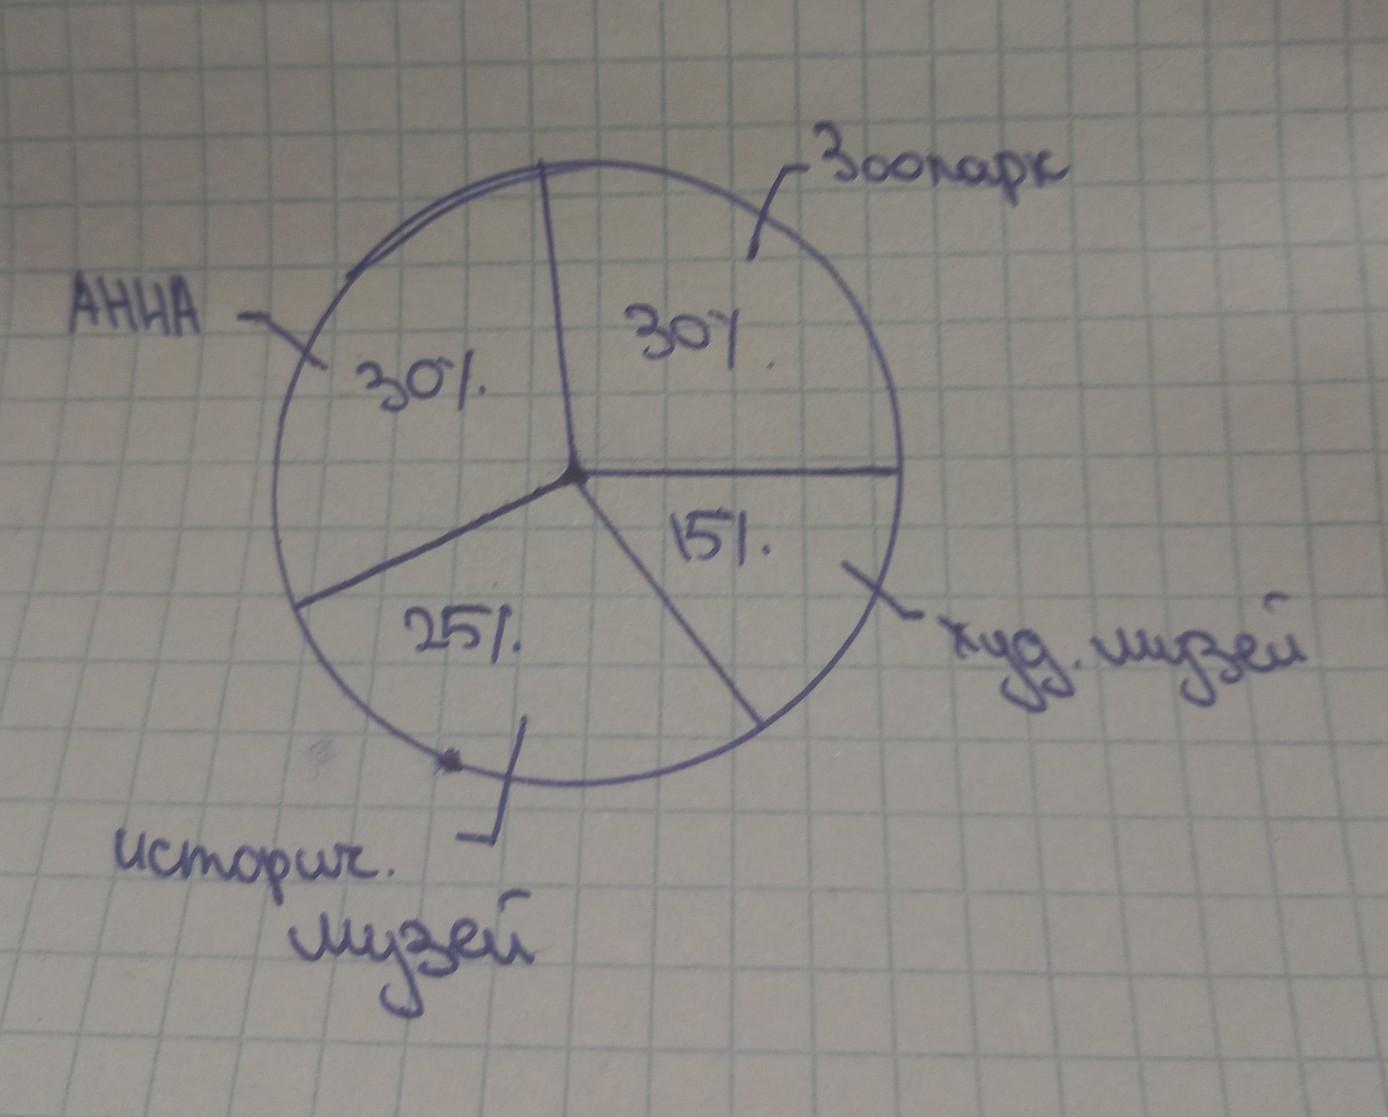 Зоопарк
АННА
30%.
30%.
15%.
худ. музей
25%.
историч.
музей